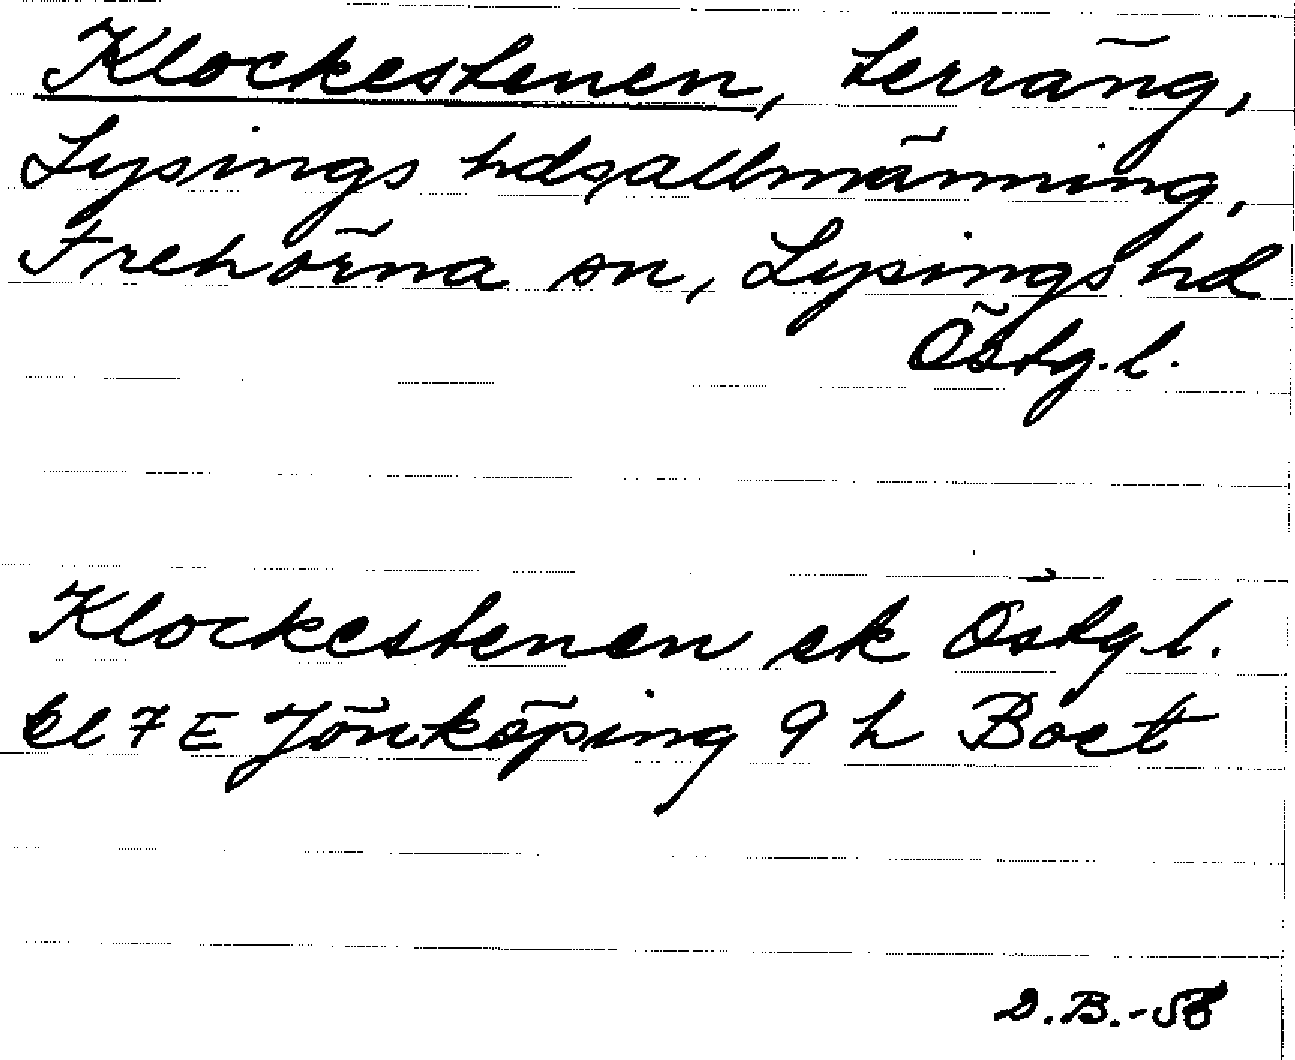 Klockestenen, terräng,
Lysings hdsallmänning,
Trehörna sn, Lysings hd
Östg.l.
Klockestenen ek Östg l.
bl 7 E Jönköping 9 h Boet
D.B.-58